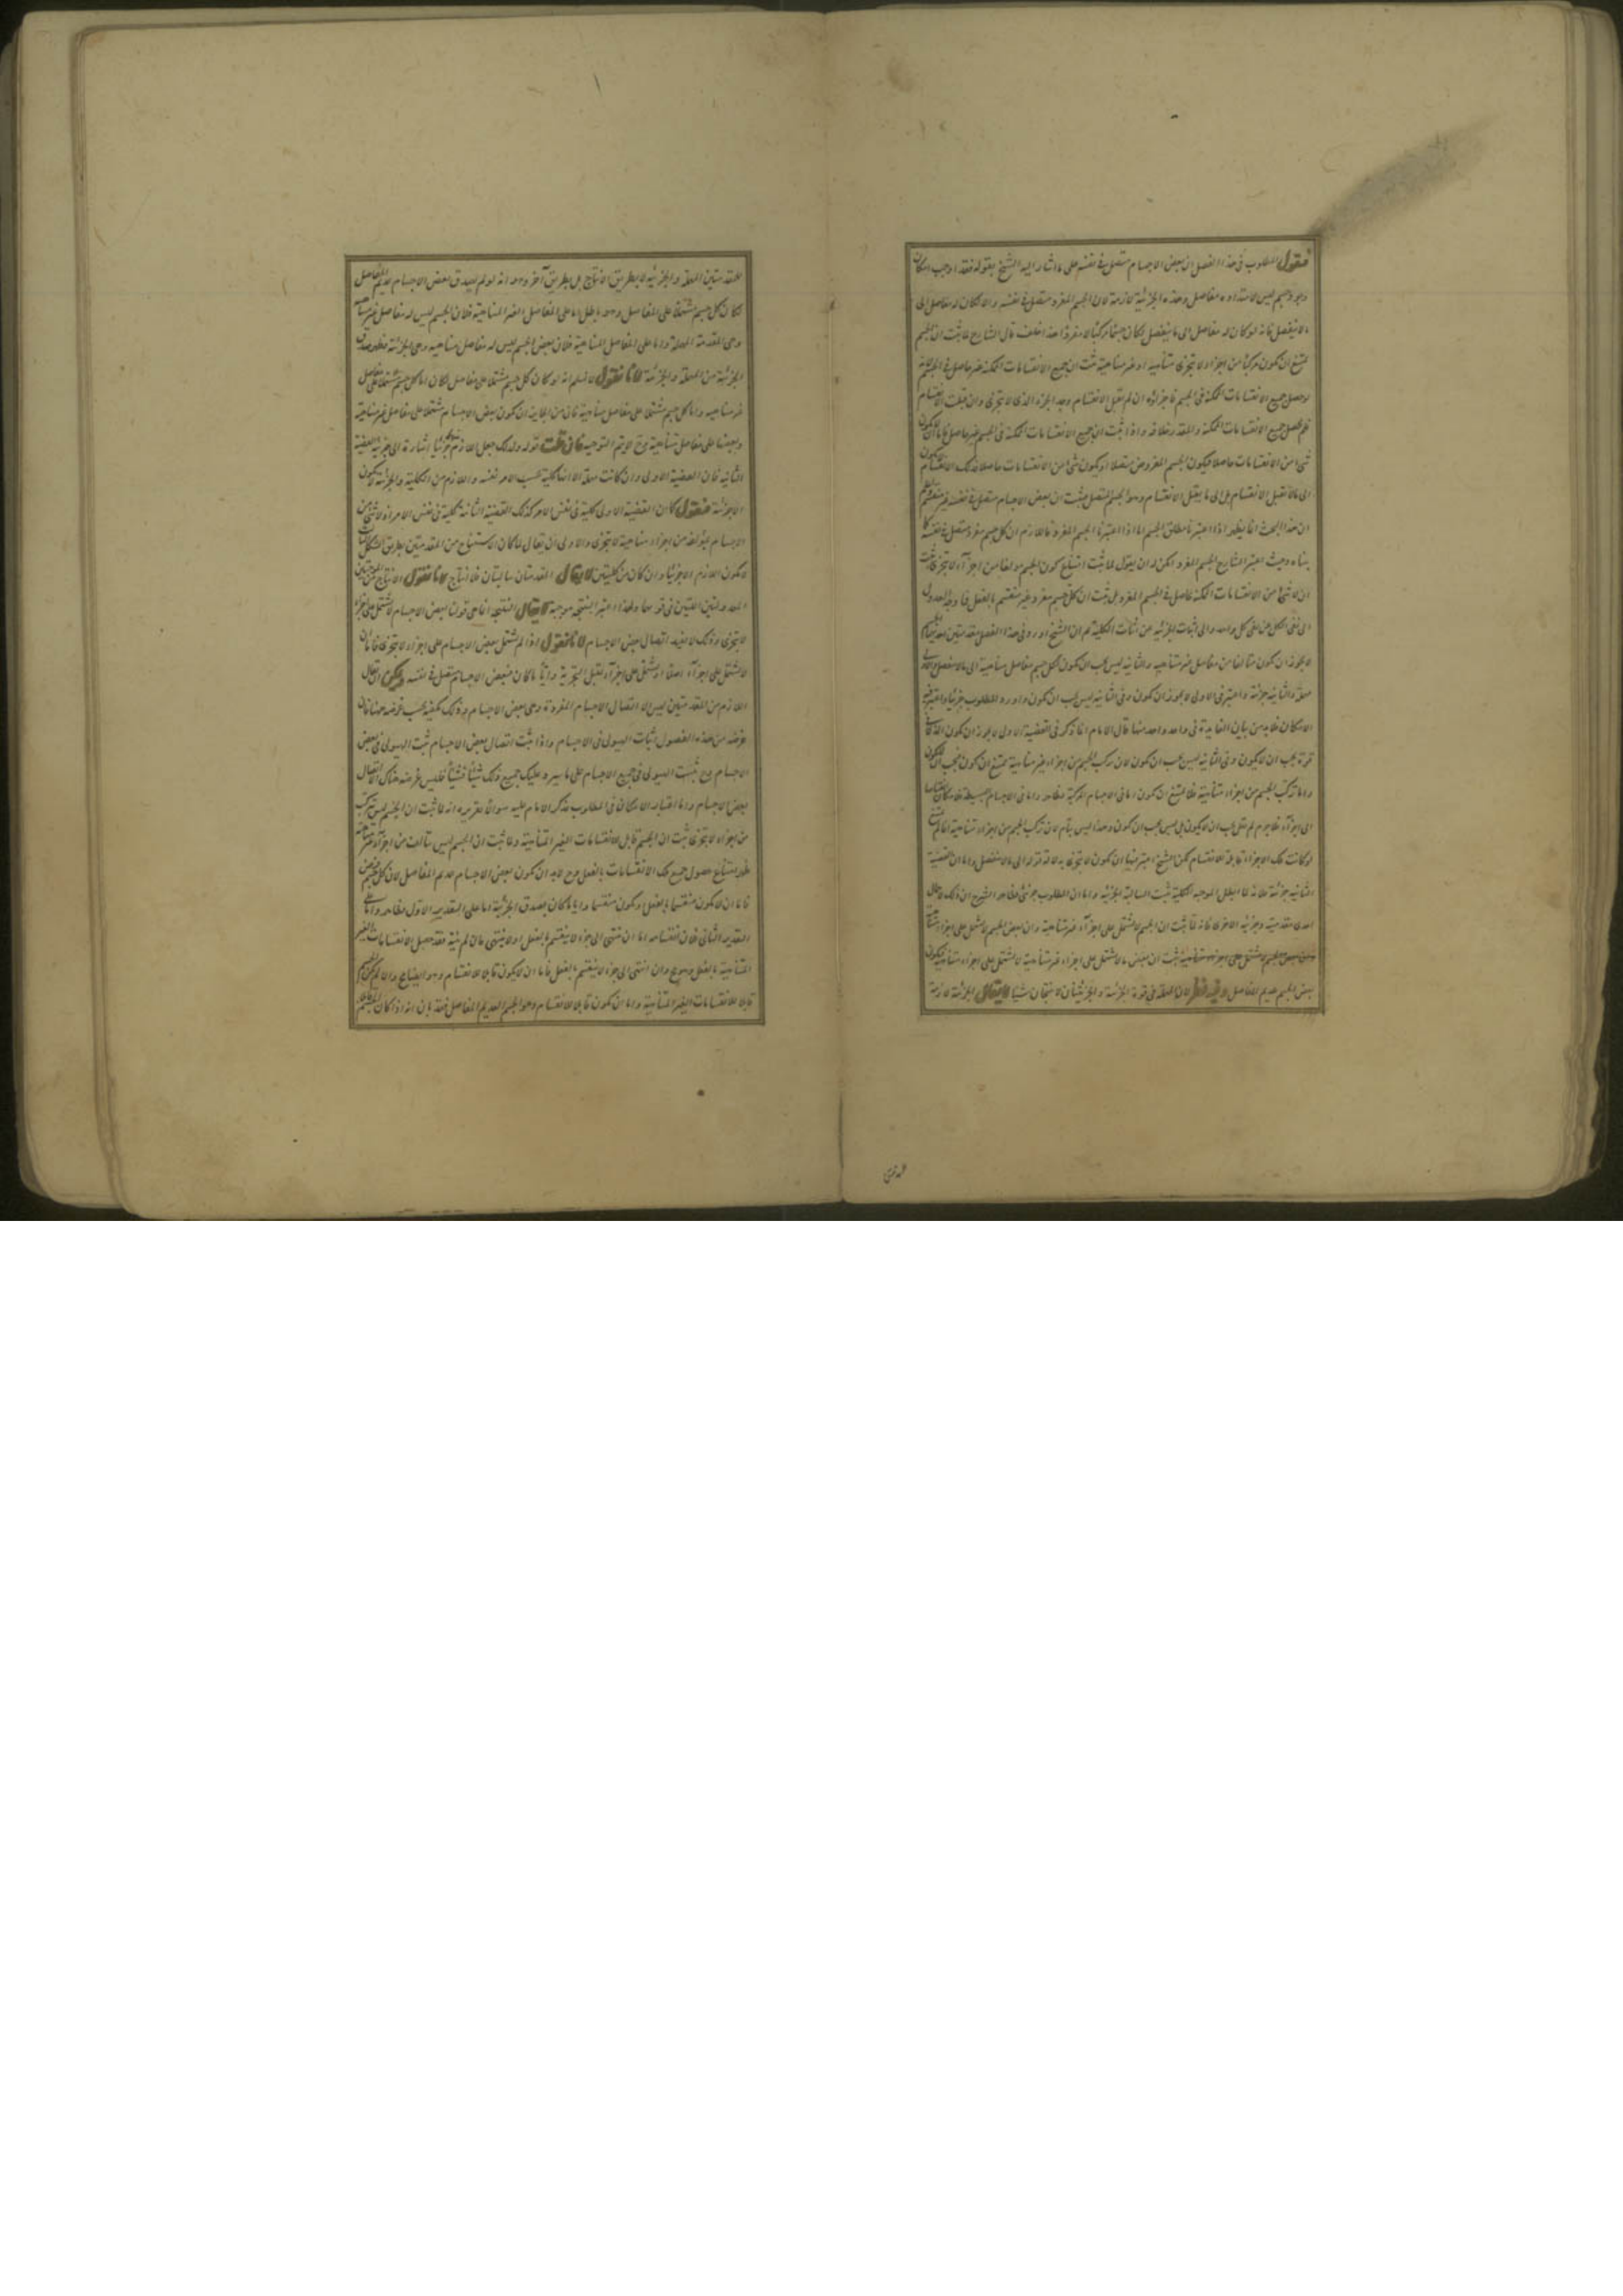 فنقول المطلوب فى هذا الفصل ان بعض الاجسام متصل فى نفسه على ما اشار اليه الشيخ بقوله فقد اوجب امكان
وجود جسم ليس لامتداده مفاصل وهذه الجزئية لازمة لان الجسم المفرد متصل فى نفسه والا لكان له مفاصل الى
ما لا ينفصل فانه لو كان له مفاصل الى ما ينفصل لكان جسما مركبا لا مفردا هذا خلف قال الشارح لما ثبت ان الجسم
يمتنع ان يكون مركبا من اجزاء لا تتجزى متناهية او غير متناهية ثبت ان جميع الانقسامات الممكنة غير حاصل فى الجسم
لو حصل جميع الانقسامات الممكنة فى الجسم فاجزاؤه ان لم تقبل الانقسام وجد الجزء الذى لا يتجزى وان قبلت الانقسام
فلم يحصل جميع الانقسامات الممكنة والمقدر خلافه واذا ثبت ان جميع الانقسامات الممكنة فى الجسم غير حاصل فاما ان لا يكون
شئ من الانقسامات حاصلا فيكون الجسم المفروض متصلا او يكون شئ من الانقسامات حاصلا فذلك الانقسام
الى ما لا تقبل الانقسام بل الى ما يقبل الانقسام وهو الجسم المتصل فيثبت ان بعض الاجسام متصل فى نفسه غير منقسم
ان هذا البحث انما يظهر اذا اعتبرنا مطلق الجسم اما اذا اعتبرنا الجسم المفرد فاللازم ان كل جسم مفرد متصل فى نفسه
بناء وحيث اعتبر الشارح الجسم المفرد امكن له ان يقول لما ثبت امتناع كون الجسم مولفا من اجزاء لا تتجزى ثبت
ان لا شئ من الانقسامات الممكنة حاصل فى الجسم المفرد بل ثبت ان كل جسم مفرد غير منقسم بالفعل فما وجه العدول
الى نفى الكل عن كل واحد والى اثبات الجزئية عن اثبات الكلية ثم ان الشيخ اورد فى هذا الفصل مقدمتين احديهما
لا يجوز ان يكون متالفا من مفاصل غير متناهية والثانية ليس يجب ان يكون لكل جسم مفاصل متناهية الى ما لا ينفصل
مهملة والثانية جزئية واعتبر فى الاولى لا يجوز ان يكون وفى الثانية ليس يجب ان يكون واورد المطلوب جزئيا
الامكان فلا بد من بيان الفايدة فى واحد واحد منها قال الامام انما ذكر فى القضية الاولى لا يجوز ان يكون
قوة يجب ان لا يكون وفى الثانية ليس يجب ان يكون لان تركب الجسم من اجزاء غير متناهية يمتنع ان يكون فيجب ان لا يكون
واما تركب الجسم من اجزاء متناهية فلا يمتنع ان يكون اما فى الاجسام المركبة فظاهر واما فى الاجسام البسيطة
الى اجزاء فلا جرم لم يقل يجب ان لا يكون بل ليس يجب ان يكون وهذا ليس بتام لان تركب الجسم من اجزاء متناهية
لو كانت تلك الاجزاء قابلة الانقسام لكن الشيخ اعتبر فيها ان يكون لا تتجزى بدلالة قوله الى ما لا ينفصل واما ان القضية
الثانية جزئية فلانه لما ابطل الموجبة الكلية ثبت السالبة الجزئية واما ان المطلوب جزئى فظاهر الشرح ان ذلك
احدى مقدمتيه وجزئية الاخرى فانه لما ثبت ان الجسم لا يشتمل على اجزاء غير متناهية وان بعض الجسم لا يشتمل على اجزاء متناهية
ثبت ان بعض ما لا يشتمل على اجزاء غير متناهية لا يشتمل على اجزاء متناهية فيكون
بعض الجسم عديم المفاصل وفيه نظر لان المهملة فى قوة الجزئية والجزئيتان لا تنتجان شيا لا يقال الجزئية لازمة
للمقدمتين المهملة والجزئية لا بطريق الانتاج بل بطريق آخر وهو انه لو لم يصدق بعض الاجسام عديم المفاصل
لكان كل جسم مشتملا على المفاصل وهو باطل اما على المفاصل الغير المتناهية فلان الجسم ليس له مفاصل غير متناهية
وهى المقدمة المهملة واما على المفاصل المتناهية فلان بعض الجسم ليس له مفاصل متناهية وهى الجزئية فظهر صدق
الجزئية من المهملة والجزئية لانا نقول لا نسلم انه لو كان كل جسم مشتملا على مفاصل لكان اما كل جسم مشتملا على مفاصل
غير متناهية واما كل جسم مشتملا على مفاصل متناهية فان من الجايز ان يكون بعض الاجسام مشتملا على مفاصل غير متناهية
وبعضها على مفاصل متناهية وح لا يتم التوجيه فان قلت قوله ولذلك جعل اللازم جزئيا اشارة الى جزئية القضية
الثانية فان القضية الاولى وان كانت مهملة الا انها كلية بحسب الامر نفسه واللازم من الكلية والجزئية لا يكون
الا جزئية فنقول كما ان القضية الاولى كلية فى نفس الامر كذلك القضية الثانية كلية فى نفس الامر اذ لا شئ من
الاجسام بمؤلف من اجزاء متناهية لا تتجزى والاولى ان يقال لما كان الاستنتاج من المقدمتين بطريق الشكل الثالث
لا يكون اللازم الا جزئيا وان كان من كليتين لا يقال المقدمتان سالبتان فلا انتاج لانا نقول الانتاج من الموجبتين
المعدولتين اللتين فى قوتهما ولهذا اعتبر النتيجة موجبة لا يقال النتيجة انما هى قولنا بعض الاجسام لا يشتمل على اجزاء
لا تتجزى وذلك لا يفيد اتصال بعض الاجسام لانا نقول اذا لم يشتمل بعض الاجسام على اجزاء لا تتجزى فاما ان
لا يشتمل على اجزاء اصلا او يشتمل على اجزاء تقبل التجزية وايا ما كان فبعض الاجسام متصل فى نفسه ويمكن ان يقال
اللازم من المقدمتين ليس الا اتصال الاجسام المفردة وهى بعض الاجسام وذلك يكفيه بحسب غرضه ههنا فان
غرضه من هذه الفصول اثبات الهيولى فى الاجسام واذا ثبت اتصال بعض الاجسام ثبت الهيولى فى بعض
الاجسام وح يثبت الهيولى فى جميع الاجسام على ما سيرد عليك جميع ذلك شيئا فشيئا فليس غرضه هناك الا اتصال
بعض الاجسام واما اعتبار الامكان فى المطلوب فذكر الامام عليه سوالا تقريره انه لما ثبت ان الجسم ليس بتركب
من اجزاء لا تتجزى ثبت ان الجسم قابل للانقسامات الغير المتناهية ولما ثبت ان الجسم ليس يتالف من اجزاء غير متناهية
ظهر امتناع حصول جميع تلك الانقسامات بالفعل وح لا بد ان يكون بعض الاجسام عديم المفاصل لان كل جسم يفرض
فاما ان لا يكون منقسما بالفعل او يكون منقسما وايا ما كان يصدق الجزئية اما على التقدير الاول فظاهر واما على
التقدير الثانى فلان انقسامه اما ان ينتهى الى جزء لا ينقسم بالفعل او لا ينتهى فان لم ينته فقد حصل الانقسامات الغير
المتناهية بالفعل وهو مح وان انتهى الى جزء لا ينقسم بالفعل فاما ان لا يكون قابلا للانقسام وهو ايضا مح والا لم يكن الجسم
قابلا للانقسامات الغير المتناهية واما ان يكون قابلا للانقسام وهو الجسم العديم المفاصل فقد بان انه اذا كان
للمقدمتين